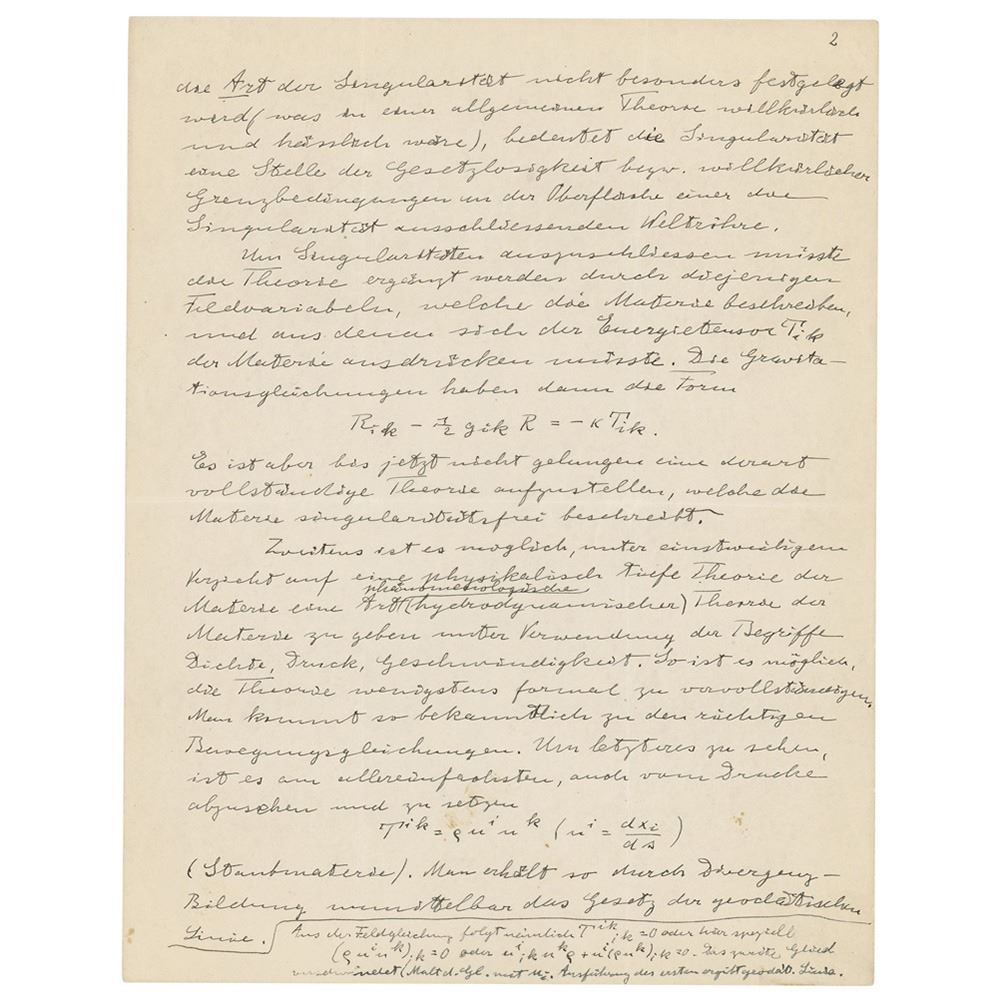 2
die Art der Singularität nicht besonders festgelegt
wird (was in einer allgemeinen Theorie willkürlich
und hässlich wäre), bedeutet die Singularität
eine Stelle der Gesetzlosigkeit bezw. willkürlicher
Grenzbedingungen an der Oberfläche einer die
Singularität ausschliessenden Weltröhre.
Um Singularitäten auszuschliessen müsste
die Theorie ergänzt werden durch diejenigen
Feldvariabeln, welche die Materie beschreiben,
und aus denen sich der Energietensor Tik
der Materie ausdrücken müsste. Die Gravita-
tionsgleichungen haben dann die Form
Rik - 1/2 gik R = -κ Tik.
Es ist aber bis jetzt nicht gelungen eine derart
vollständige Theorie aufzustellen, welche die
Materie singularitätsfrei beschreibt.
Zweitens ist es möglich, unter einstweiligem
Verzicht auf eine physikalisch tiefe Theorie der
phänomenologische
Materie eine Art (hydrodynamischer) Theorie der
Materie zu geben unter Verwendung der Begriffe
Dichte, Druck, Geschwindigkeit. So ist es möglich,
die Theorie wenigstens formal zu vervollständigen.
Man kommt so bekanntlich zu den richtigen
Bewegungsgleichungen. Um letzteres zu sehen,
ist es am allereinfachsten, auch vom Drucke
abzusehen und zu setzen
T^ik = ρ u^i u^k (u^i = dxi/ds)
(Staubmaterie). Man erhält so durch Divergenz-
Bildung unmittelbar das Gesetz der geodätischen
Linie. Aus der Feldgleichung folgt nämlich T^ik;k = 0 oder hier speziell
(ρ u^i u^k);k = 0 oder u^i;k u^k ρ + u^i (ρ u^k);k = 0. Das zweite Glied
verschwindet (Mult. d. Gl. mit ui. Ausführung des ersten ergibt geodät. Linie.